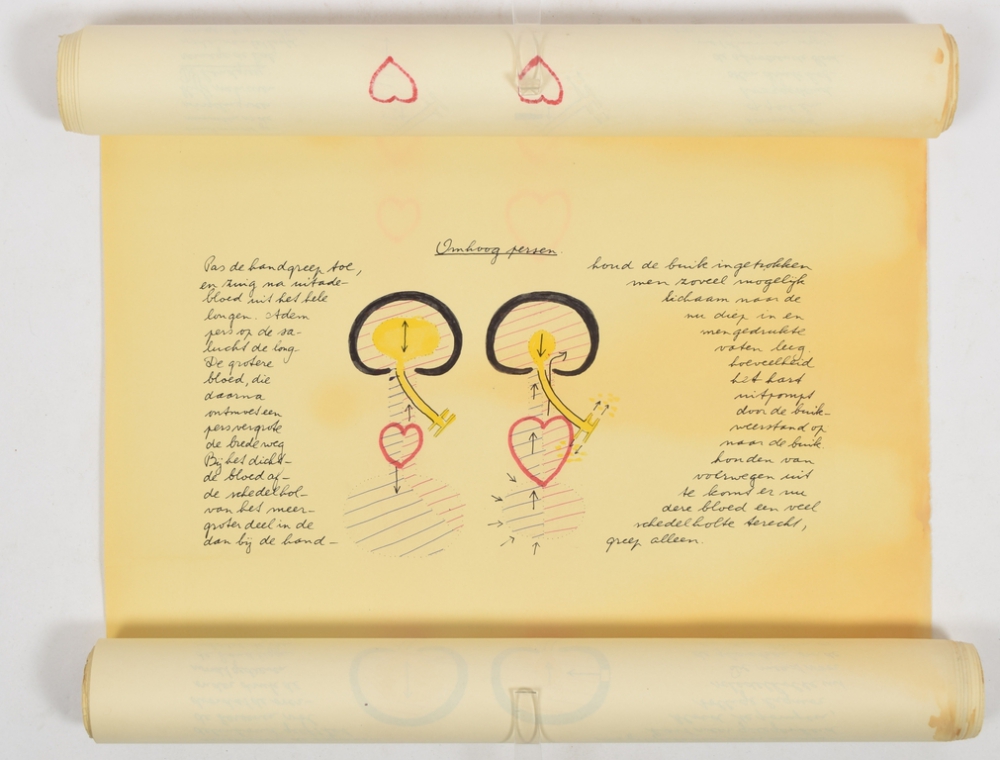 Omhoog persen.
Pas de handgreep toe, houd de buik ingetrokken
en zuig na uitade- men zoveel mogelijk
bloed uit het hele lichaam naar de
longen. Adem nu diep in en
pers op de sa- mengedrukte
lucht de long- vaten leeg
De grotere hoeveelheid
bloed, die het hart
daarna uitpompt
ontmoet een door de buik-
pers vergrote weerstand op
de brede weg naar de buik.
Bij het dicht- houden van
de bloed af- voerwegen uit
de schedelhol- te komt er nu
van het meer- dere bloed een veel
groter deel in de schedelholte terecht,
dan bij de hand- greep alleen.